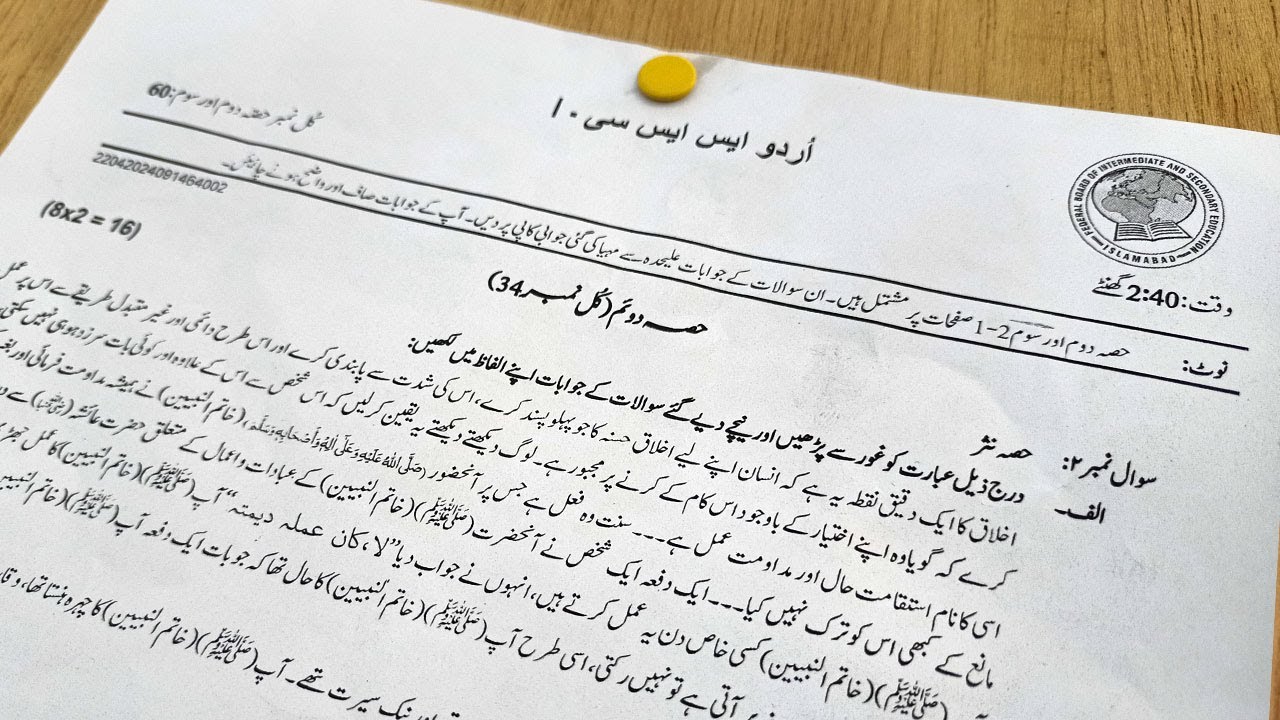 اُردو ایس ایس سی-I
کُل نمبر حصّہ دوم اور سوم:60
FEDERAL BOARD OF INTERMEDIATE AND SECONDARY EDUCATION
ISLAMABAD
وقت:2:40 گھنٹے
نوٹ: حصہ دوم اور سوم 2-1 صفحات پر مشتمل ہیں۔ان سوالات کے جوابات علیحدہ سے مہیا کی گئی جوابی کاپی پر دیں۔ آپ کے جوابات صاف اور واضح ہونے چاہیئں۔
22042024091464002
حصہ دوئم (کُل نمبر 34)
سوال نمبر ۲: حصہ نثر
الف۔ درج ذیل عبارت کو غور سے پڑھیں اور نیچے دیے گئے سوالات کے جوابات اپنے الفاظ میں لکھیں: (8x2 = 16)
اخلاق کا ایک دقیق نقطہ یہ ہے کہ انسان اپنے لیے اخلاق حسنہ کا جو پہلو پسند کرے، اس کی شدت سے پابندی کرے اور اس طرح دائمی اور غیر متبدل طریقے سے اس پر عمل
کرے کہ گویا وہ اپنے اختیار کے باوجود اس کام کے کرنے پر مجبور ہے۔ لوگ دیکھتے دیکھتے یہ یقین کر لیں کہ اس شخص سے اس کے علاوہ اور کوئی بات سرزد ہو ہی نہیں سکتی
اسی کا نام استقامت حال اور مداومت عمل ہے۔۔۔ سنت وہ فعل ہے جس پر آنحضور (صَلَّی اللہُ عَلَیْہِ وَعَلٰی اٰلِہٖ وَاَصْحَابِہٖ وَسَلَّم)، (خاتم النبیین) نے ہمیشہ مداومت فرمائی اور بغیر
مانع کے کبھی اس کو ترک نہیں کیا۔۔۔ ایک دفعہ ایک شخص نے آنحضرت (ﷺ)(خاتم النبیین) کے عبادات و اعمال کے متعلق حضرت عائشہ (رضی اللہ عنہا) سے
(ﷺ)(خاتم النبیین) کسی خاص دن یہ عمل کرتے ہیں، انہوں نے جواب دیا "لا، کان عملہ دیمتہ" آپ (ﷺ)(خاتم النبیین) کا عمل جھڑی
آتی ہے تو نہیں رکتی، اسی طرح آپ (ﷺ)(خاتم النبیین) کا حال تھا کہ جو بات ایک دفعہ آپ (ﷺ)(خاتم النبیین)
نیک سیرت تھے۔ آپ (ﷺ)(خاتم النبیین) کا چہرہ ہنستا تھا،